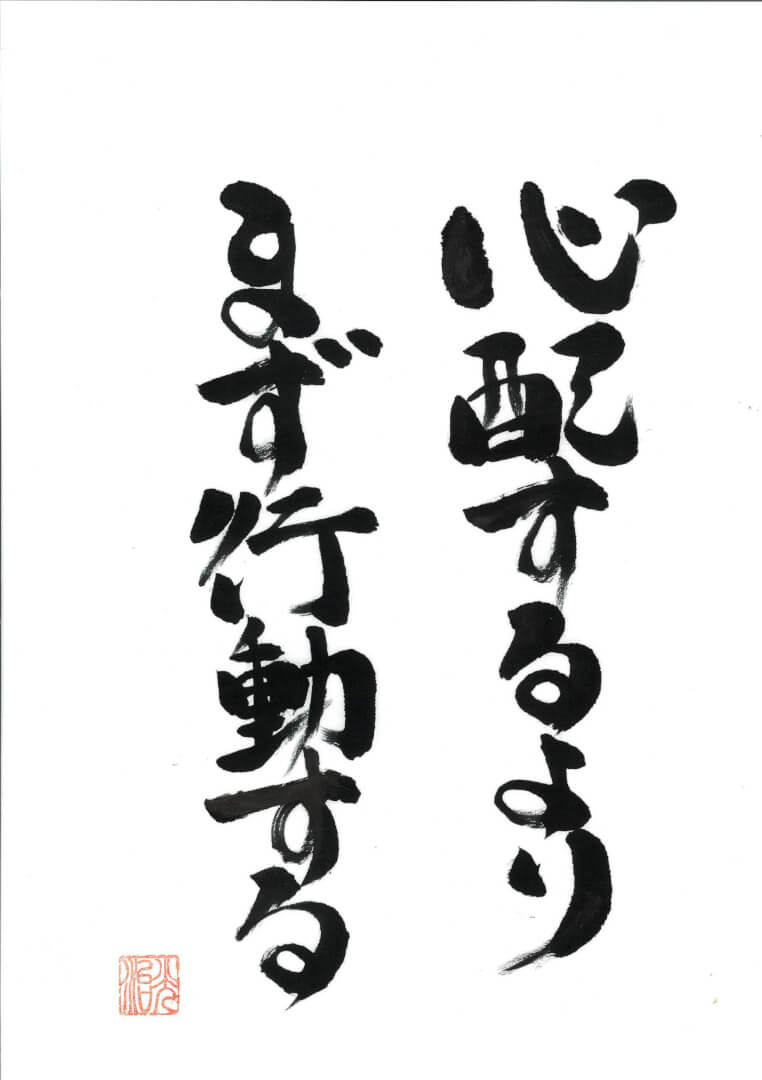 心配するより
まず行動する